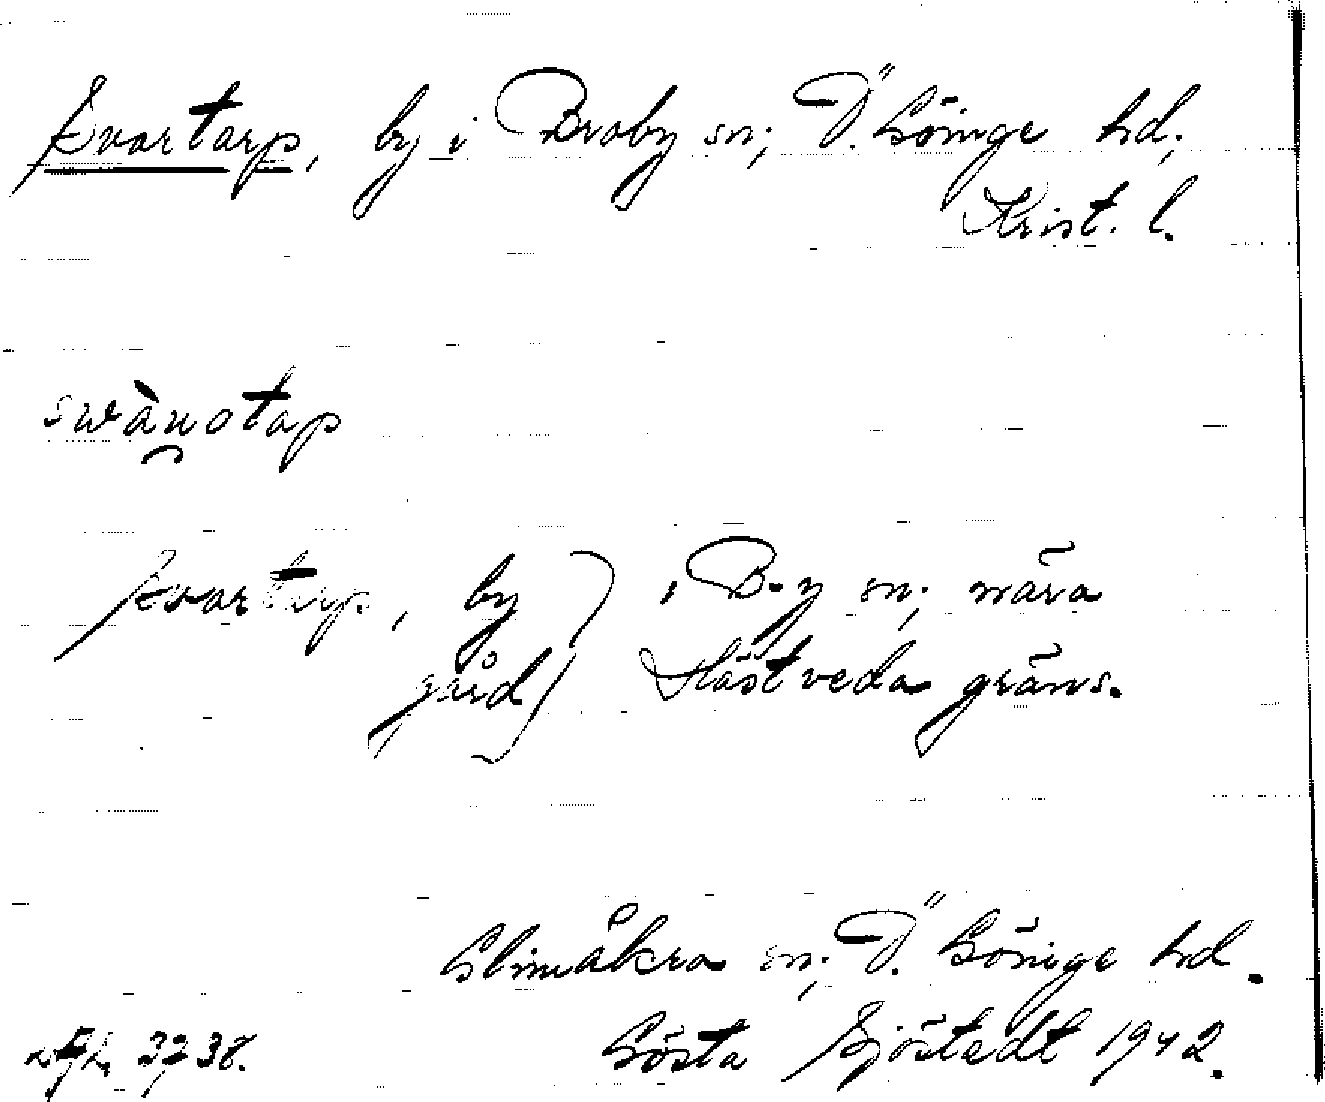 Svartarp, by i Broby sn; Ö. Göinge hd;
Krist. l.
Svartarp, by
gård } i B-y sn; nära
Hästveda gräns.
Glimåkra sn; Ö. Göinge hd.
Gösta Sjöstedt 1942.
3738.